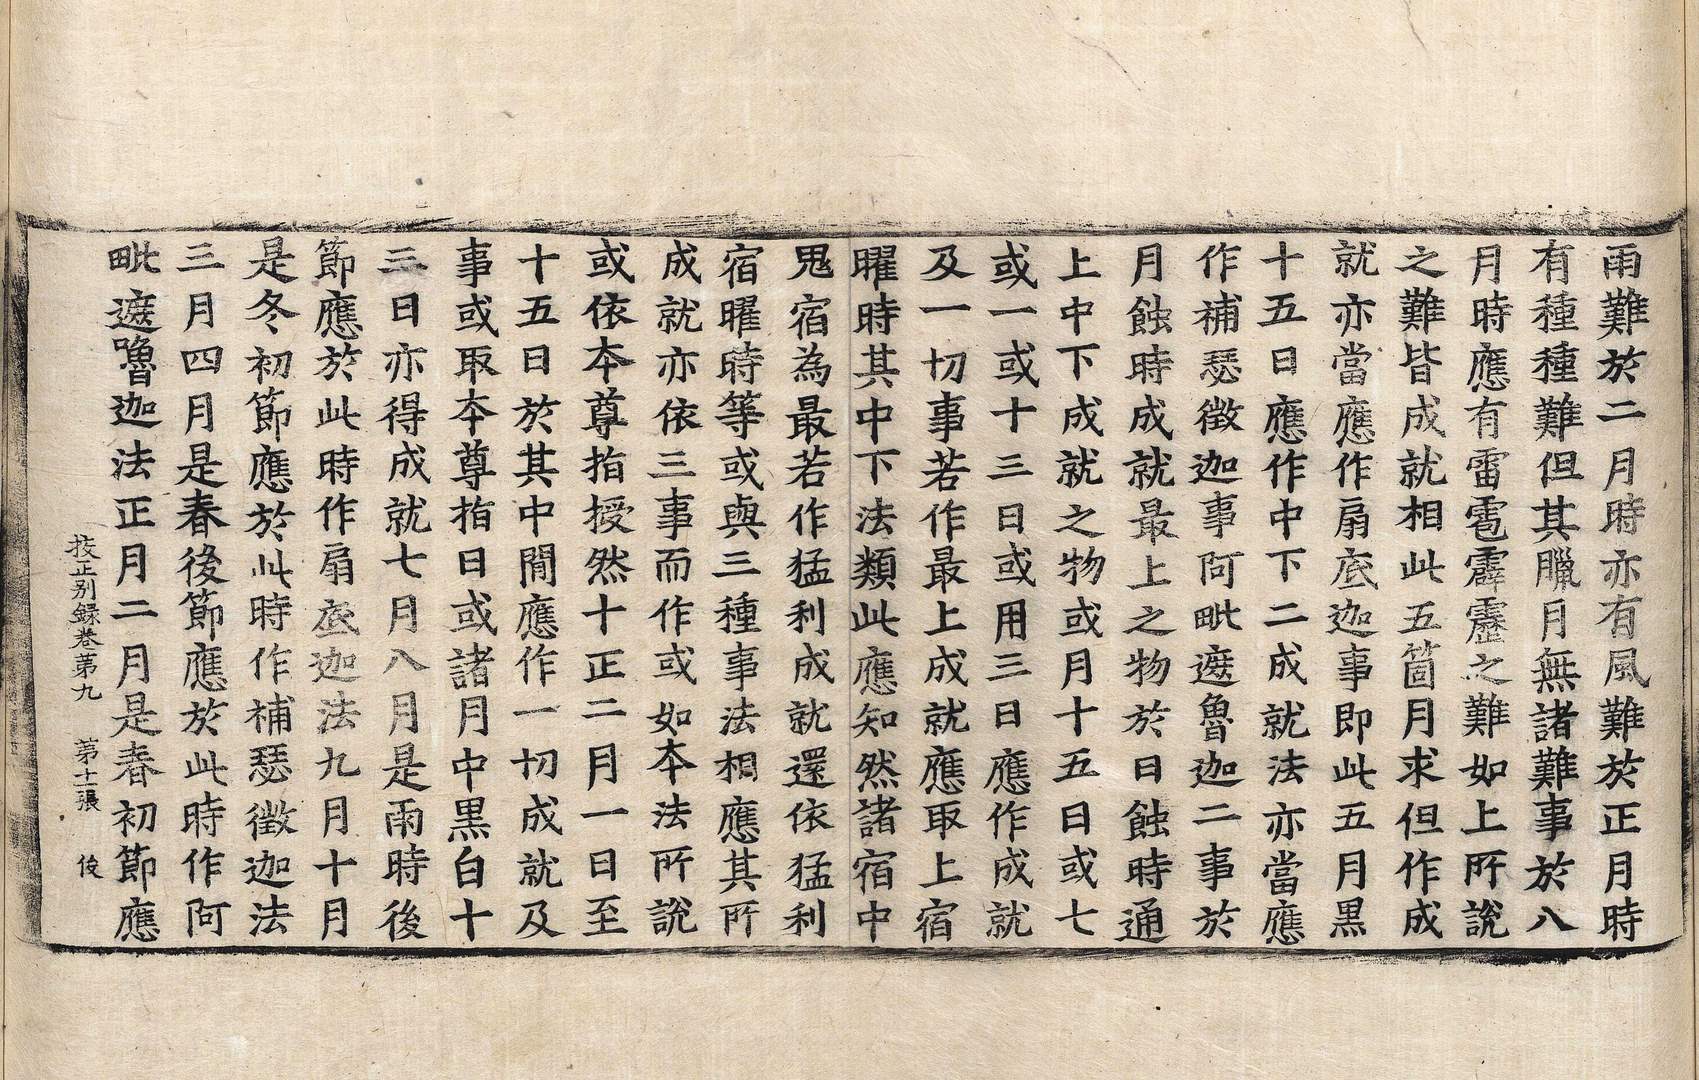 雨難於二月時亦有風難於正月時
有種種難但其臘月無諸難事於八
月時應有雷雹霹靂之難如上所說
之難皆成就相此五箇月求但作成
就亦當應作扇底迦事即此五月黒
十五日應作中下二成就法亦當應
作補瑟徵迦事阿毗遮魯迦二事於
月蝕時成就最上之物於日蝕時通
上中下成就之物或月十五日或七
或一或十三日或用三日應作成就
及一切事若作最上成就應取上宿
曜時其中下法類此應知然諸宿中
鬼宿為最若作猛利成就還依猛利
宿曜時等或與三種事法相應其所
成就亦依三事而作或如本法所說
或依本尊指授然十正二月一日至
十五日於其中間應作一切成就及
事或取本尊指日或諸月中黒白十
三日亦得成就七月八月是雨時後
節應於此時作扇底迦法九月十月
是冬初節應於此時作補瑟徵迦法
三月四月是春後節應於此時作阿
毗遮嚕迦法正月二月是春初節應
挍正別録卷第九 第十二張 俊